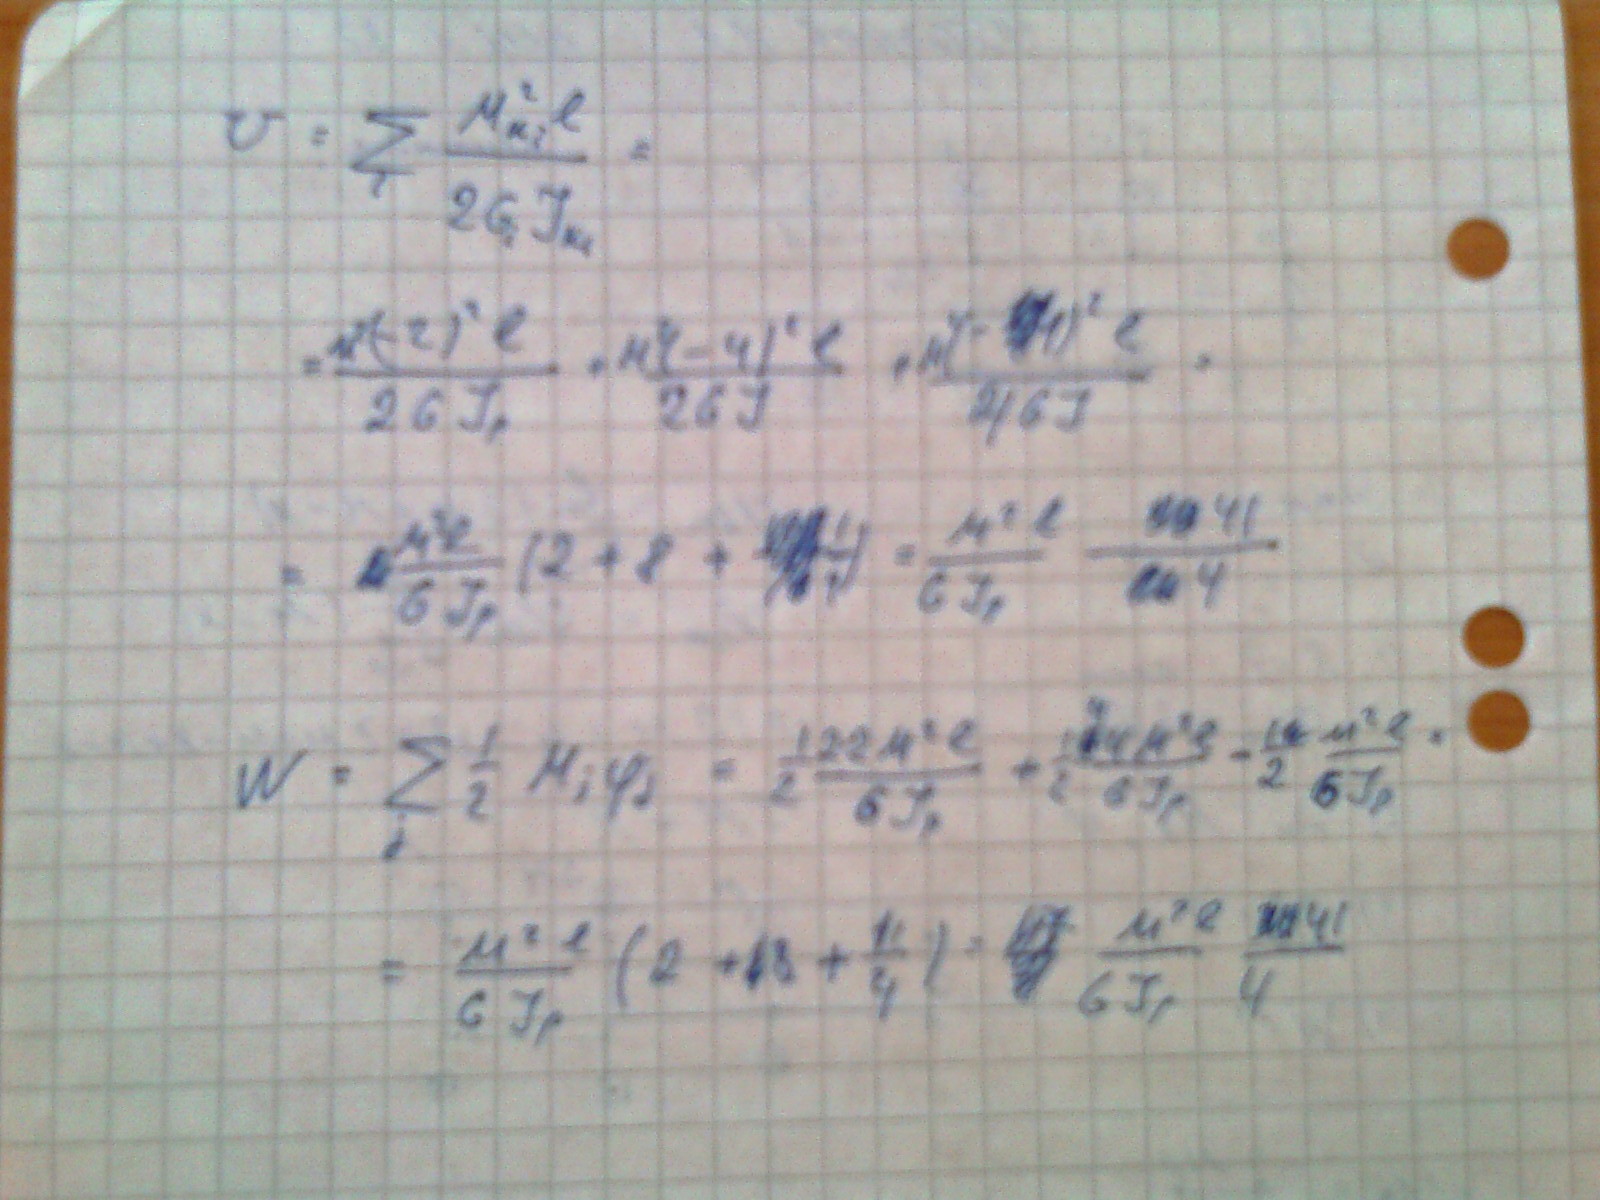 U = Σ_i M²_{кi} l / 2G_i J_{кi} =
= M²(-2)² l / 2GJ_p + M²(-4)² l / 2GJ + M²(-1)² l / 2·4GJ =
= M²l / GJ_p (2 + 8 + 1/4) = M² l / GJ_p 41 / 4
W = Σ_j 1/2 M_j φ_j = 1/2 22M² l / GJ_p + 1/2 M² l / GJ_p - 1/2 M² l / GJ_p =
= M² l / GJ_p (2 + + 11/4) = M² l / GJ_p 41 / 4